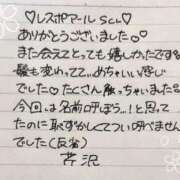 ♡レスポアール SCL♡
ありがとうございました☺
また会えてとっても嬉しかったです
髪も変わってて…めちゃいい感じ
でした♡たくさん触っちゃいました
今回は名前呼ぼう…!と思って
たのに恥ずかしくてつい呼べません
でした(反省)
芹沢